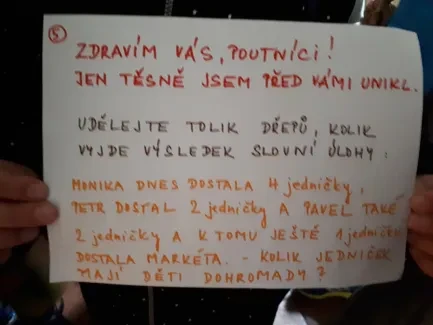 5
ZDRAVÍM VÁS, POUTNÍCI!
JEN TĚSNĚ JSEM PŘED VÁMI UNIKL.
UDĚLEJTE TOLIK DŘEPŮ, KOLIK
VYJDE VÝSLEDEK SLOVNÍ ÚLOHY:
MONIKA DNES DOSTALA 4 jedničky,
PETR DOSTAL 2 jedničky A PAVEL TAKÉ
2 jedničky A K TOMU JEŠTĚ 1 jedničku
DOSTALA MARKÉTA. - KOLIK JEDNIČEK
MAJÍ DĚTI DOHROMADY?